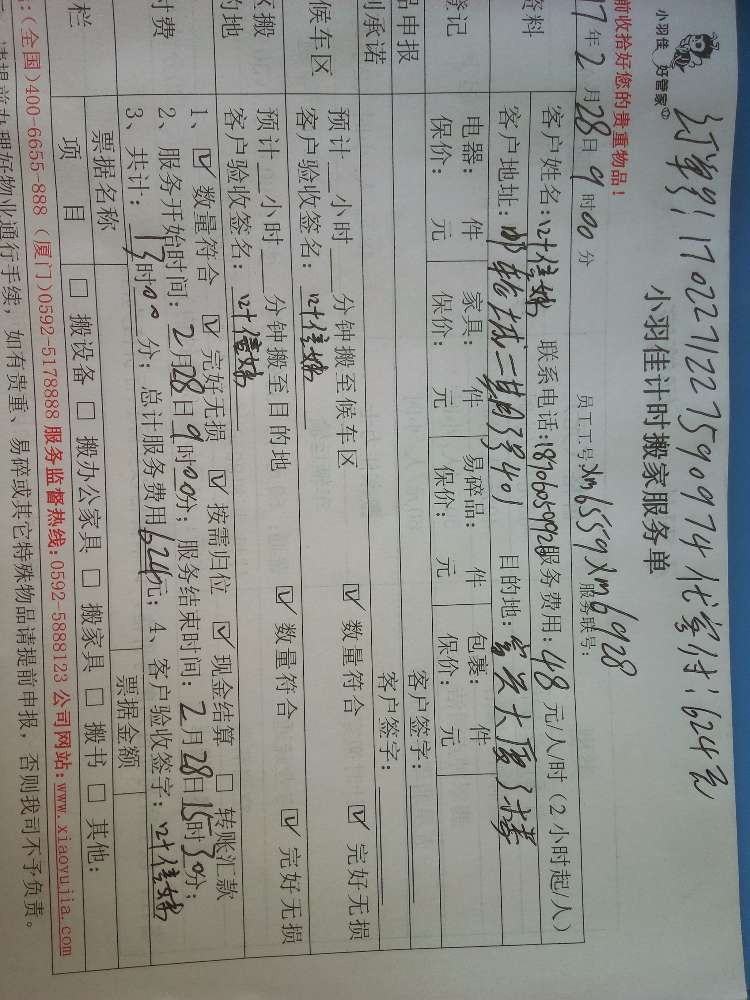 订单号1702271227590974代客付:624元
小羽佳 好管家
小羽佳计时搬家服务单
前收拾好您的贵重物品!
员工工号xm6559xm6928
服务联号:
17年2月28日9时00分
资料
客户姓名:叶佳 联系电话:18760599926服务费用:48元/人/时(2小时起/人)
客户地址:邮轮城二期 401 目的地:富兴大厦
登记
电器: 件 家具: 件 易碎品: 件 包裹: 件
保价: 元 保价: 元 保价: 元 保价: 元
品申报
客户签字:
承诺
客户签字:
候车区
预计 小时 分钟搬至候车区 ☑ 数量符合 ☑ 完好无损
客户验收签名:叶佳
搬
的地
预计 小时 分钟搬至目的地 ☑ 数量符合 ☑ 完好无损
客户验收签名:叶佳
付费
1、☑ 数量符合 ☑ 完好无损 ☑ 按需归位 ☑ 现金结算 □ 转账汇款
2、服务开始时间:2月28日9时00分;服务结束时间:2月28日15时30分;
3、共计:13时00分;总计服务费用624元;4、客户验收签字:叶佳
栏
票据名称 票据金额
项 目 □ 搬设备 □ 搬办公家具 □ 搬家具 □ 搬书 □ 其他:
:(全国)400-6655-888 (厦门)0592-5178888 服务监督热线:0592-5888123 公司网站:www.xiaoyujia.com
请提前办理好物业通行手续,如有贵重、易碎或其它特殊物品请提前申报,否则我司不予负责。